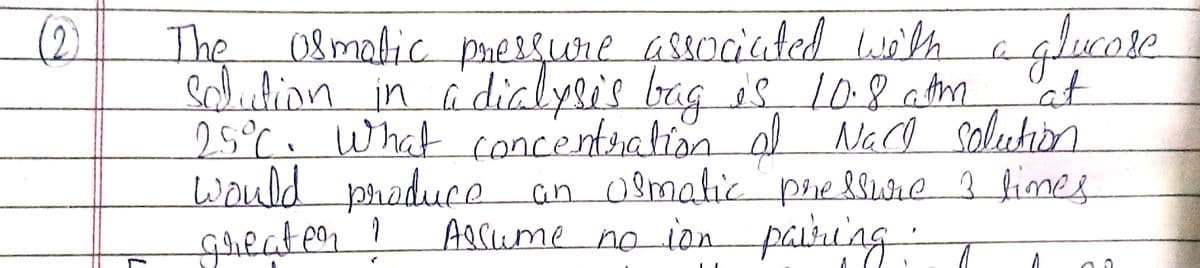 (2) The osmotic pressure associated with a glucose
solution in a dialysis bag is 10.8 atm at
25°C. What concentration of NaCl solution
would produce an osmotic pressure 3 times
greater? Assume no ion pairing.